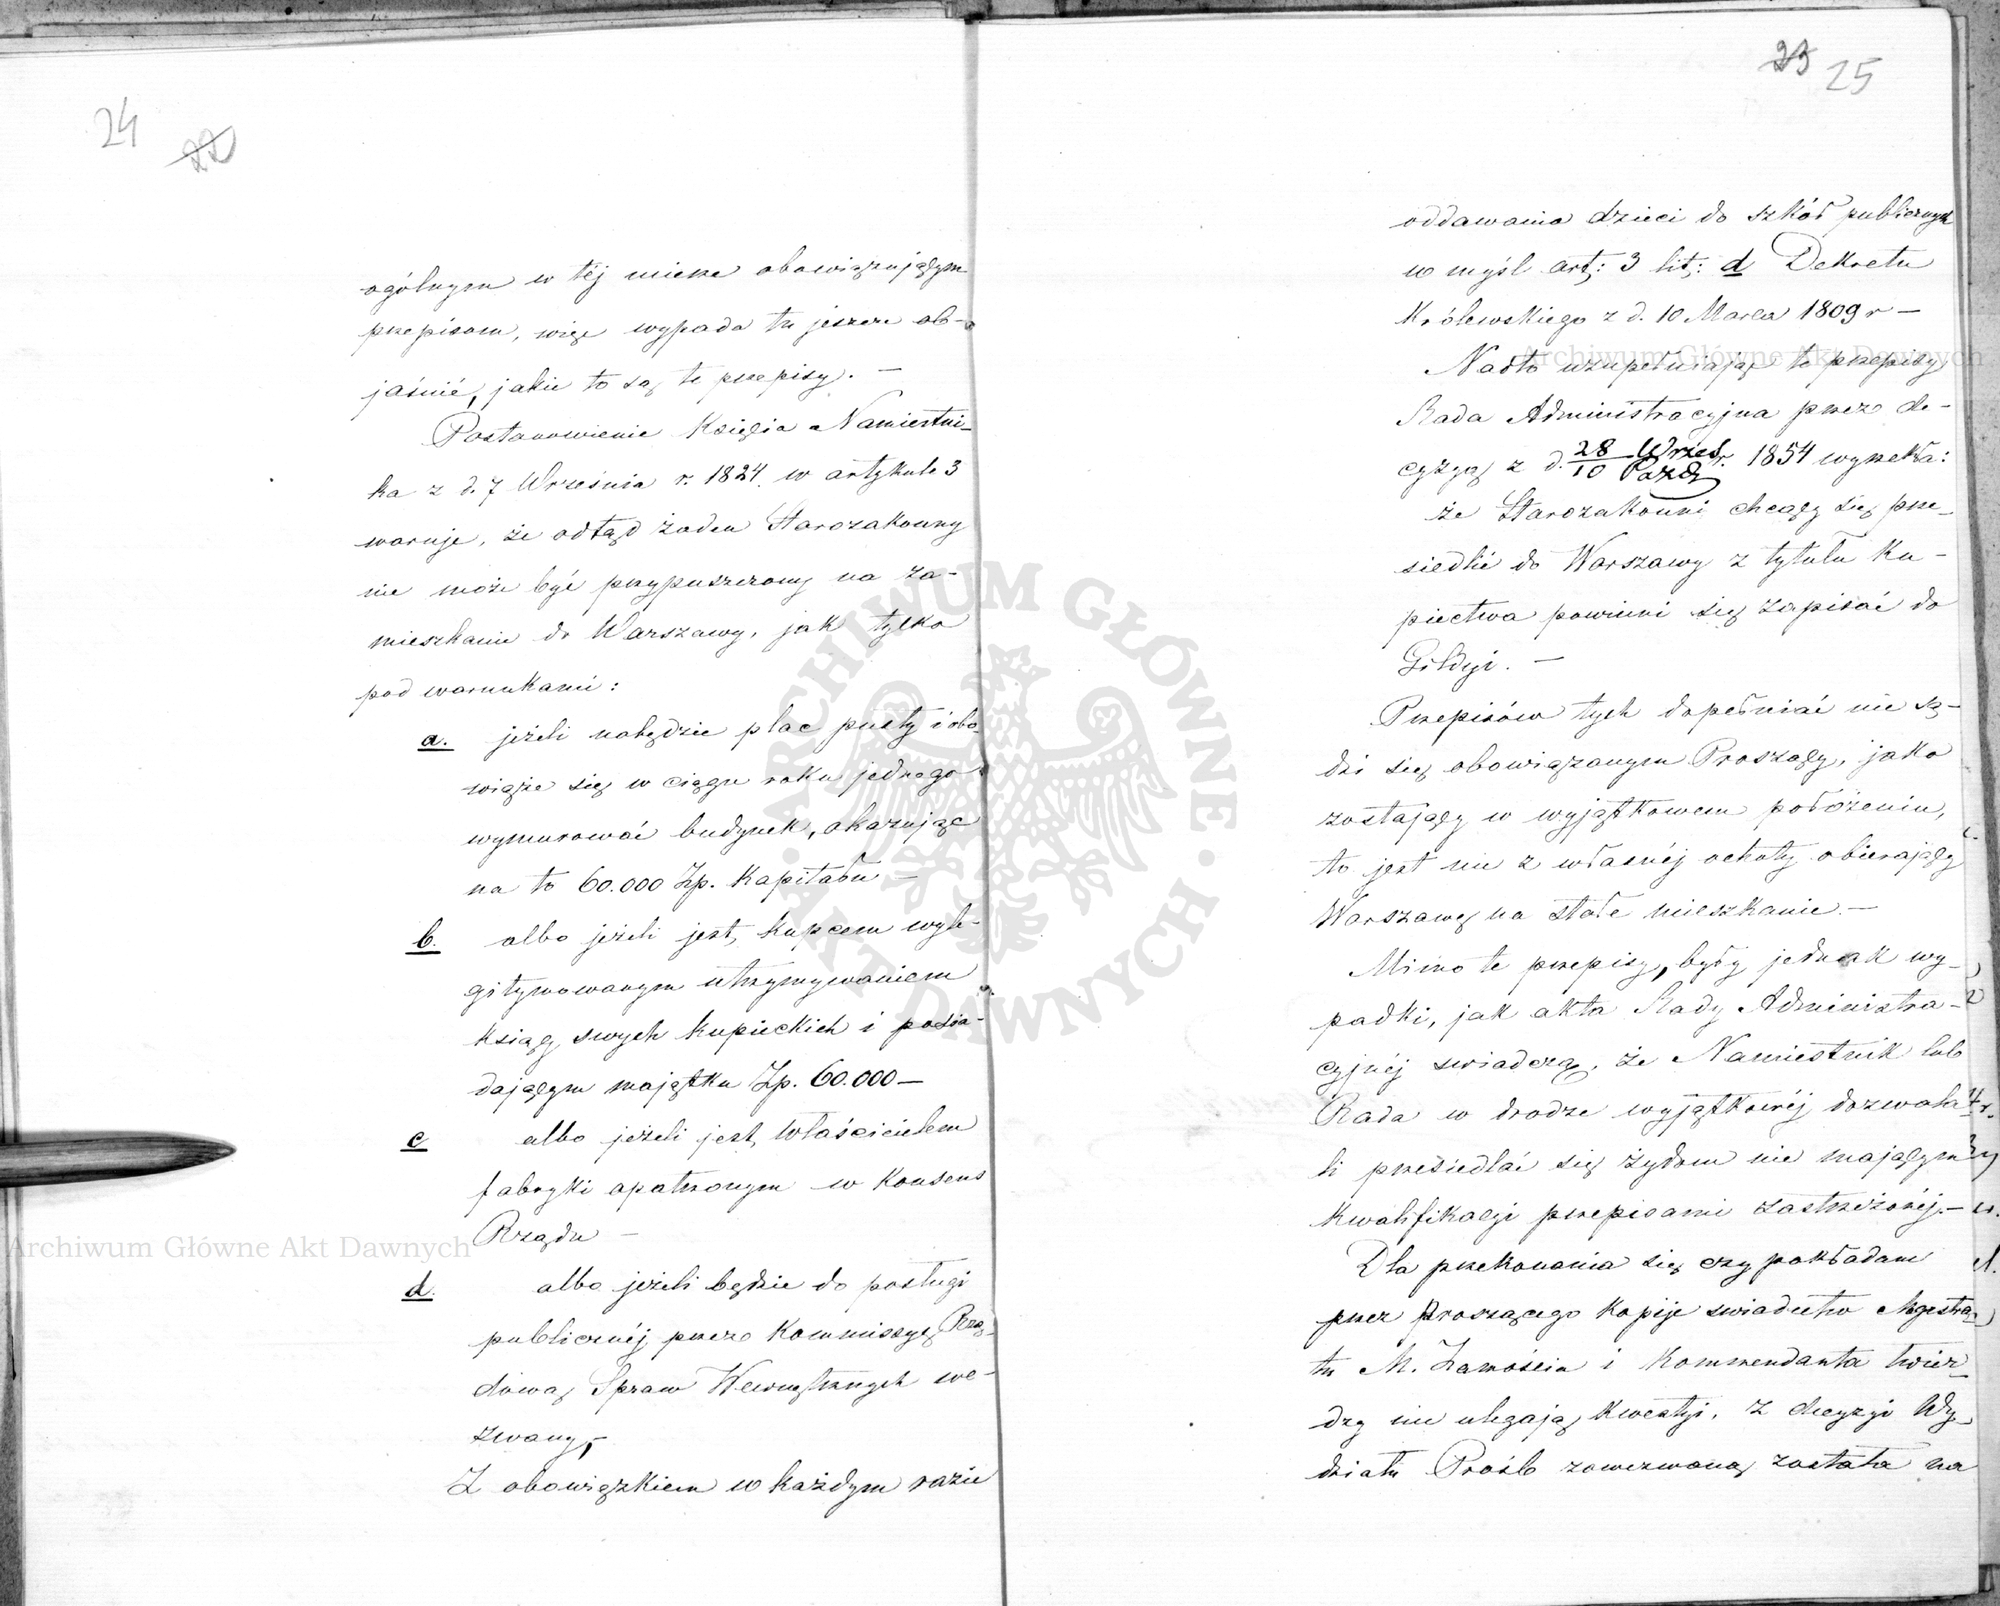 24
22
ogólnym w téj mierze obowiązującym
przepisom, więc wypada tu jeszcze ob-
jaśnić, jakie to są te przepisy. —
Postanowienie Księcia Namiestni-
ka z d. 7 Września r. 1824. w artykule 3
waruje, że odtąd żaden Starozakonny
nie może być przypuszczony na za-
mieszkanie do Warszawy, jak tylko
pod warunkami:
a. jeżeli nabędzie plac pusty i obo-
wiąże się w ciągu roku jednego
wymurować budynek, okazując
na to 60.000 Zp. Kapitału —
b. albo jeżeli jest, kupcem wyle-
gitymowanym utrzymywaniem
ksiąg swych kupieckich i posia-
dającym majątku Zp. 60.000 —
c albo jeżeli jest, właścicielem
fabryki opatrzonym w Konsens
Rządu —
d. albo jeżeli będzie do posługi
publicznéj przez Kommissyę Rzą-
dową Spraw Wewnętrznych we-
zwany, —
Z obowiązkiem w każdym razie
23 25
oddawania dzieci do szkół publicznych
w myśl art: 3 lit: d Dekretu
Królewskiego z d. 10 Marca 1809 r —
Nadto uzupełniając te przepisy
Rada Administracyjna przez de-
cyzyą z d. 28 Wrześ. / 10 Paźdź r. 1854 wyrzekła:
że Starozakonni chcący się prze-
siedlić do Warszawy z tytułu Ku-
piectwa powinni się zapisać do
Gildyi. —
Przepisów tych dopełniać nie są-
dzi się obowiązanym Proszący, jako
zostający w wyjątkowem położeniu,
to jest nie z własnéj ochoty obierający
Warszawę na stałe mieszkanie. —
Mimo te przepisy, były jednak wy-
padki, jak akta Rady Administra-
cyjnéj świadczą, że Namiestnik lub
Rada w drodze wyjątkowéj dozwala-
li przesiedlać się żydom nie mającym
Kwalifikacyi przepisami zastrzeżonéj. —
Dla przekonania się czy pokładane
przez Proszącego Kopije świadectw Magistra-
tu M. Zamościa i Kommendanta twier-
dzy nie ulegają Kwestyi, z decyzyi Wy-
działu Próśb zawezwaną została na
Archiwum Główne Akt Dawnych
Archiwum Główne Akt Dawnych
ARCHIWUM GŁÓWNE · AKT DAWNYCH ·